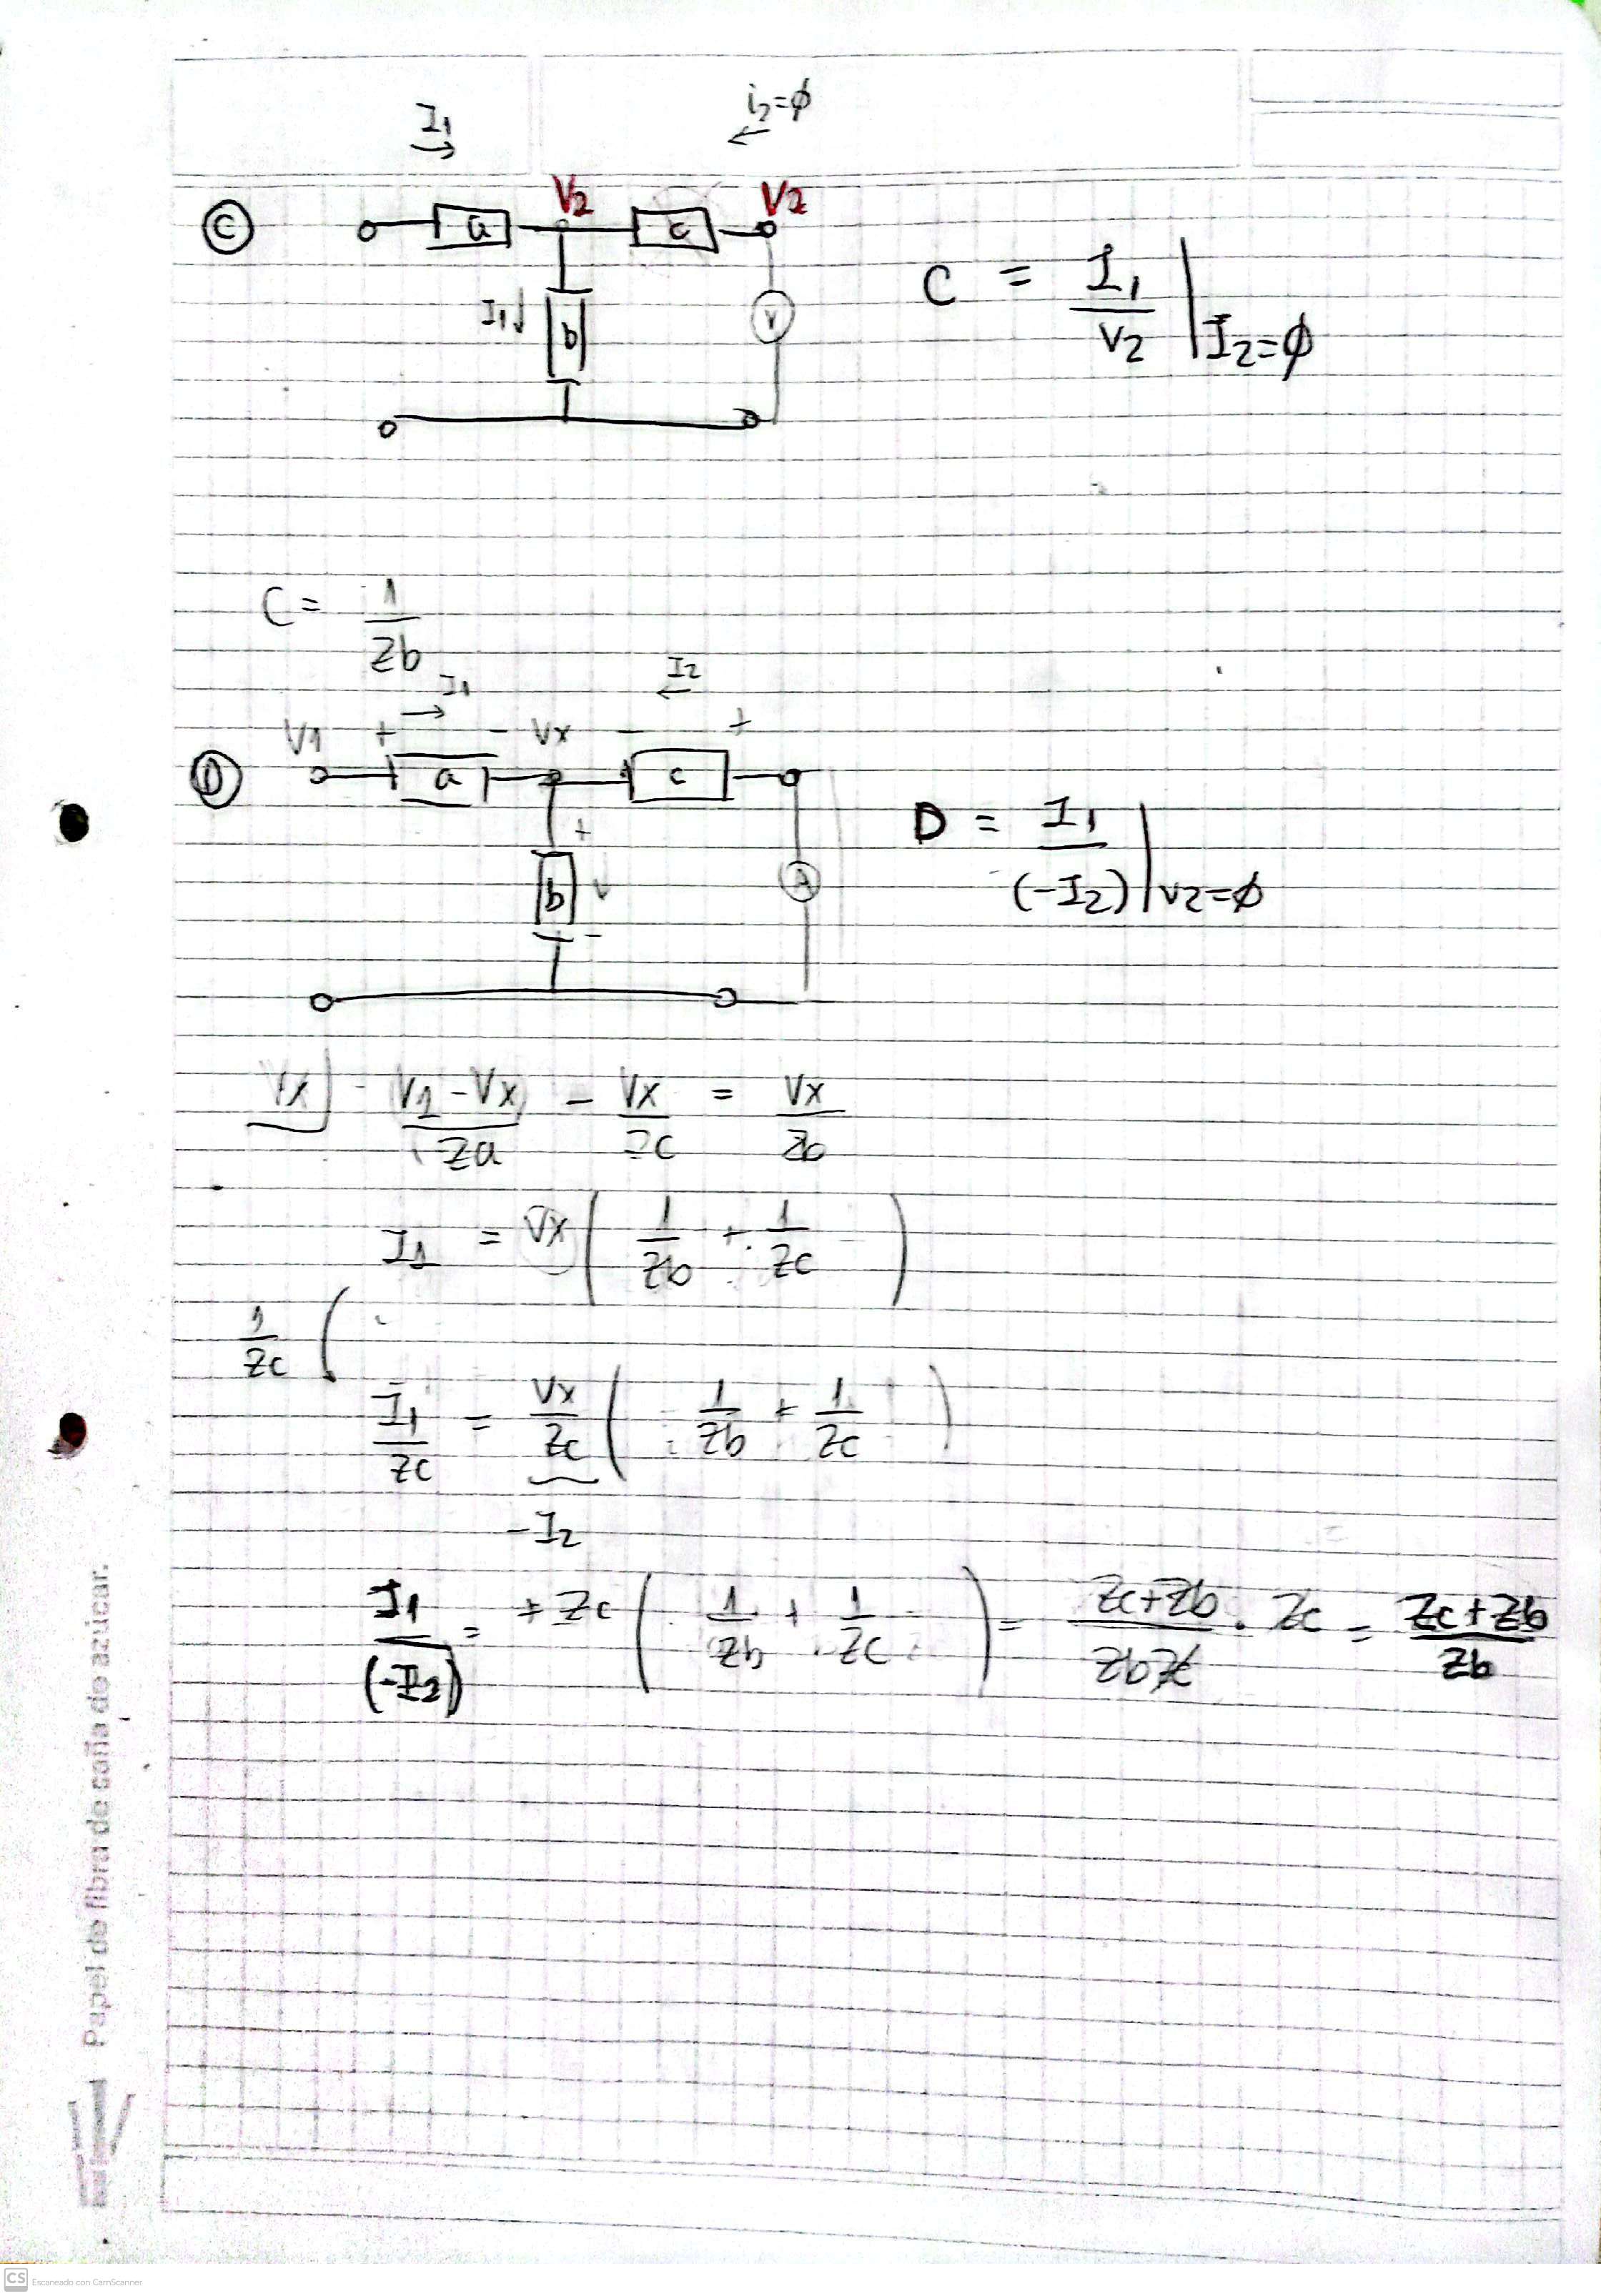 I1 → i2=ϕ ←
Ⓒ a V2 c V2
I1↓ b V
C = I1/V2 |I2=ϕ
C = 1/Zb
I1 → I2 ←
V1 + - Vx - +
Ⓓ a c
+ b - A
D = I1/(-I2) |V2=ϕ
Vx) (V1-Vx)/Za - Vx/Zc = Vx/Zb
I1 = Vx ( 1/Zb + 1/Zc )
1/Zc (
I1/Zc = Vx/Zc ( 1/Zb + 1/Zc )
-I2
I1/(-I2) = + Zc ( 1/Zb + 1/Zc ) = (Zc+Zb)/(ZbZc) · Zc = (Zc+Zb)/Zb
Papel de fibra de caña de azúcar.
CS Escaneado con CamScanner